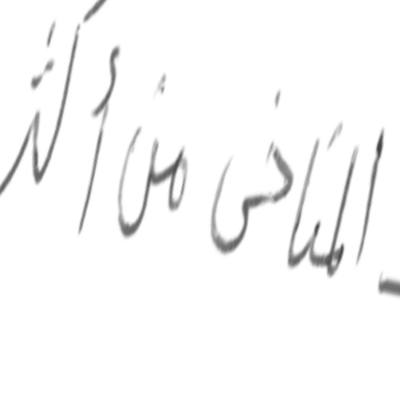 المناخى من أكثر